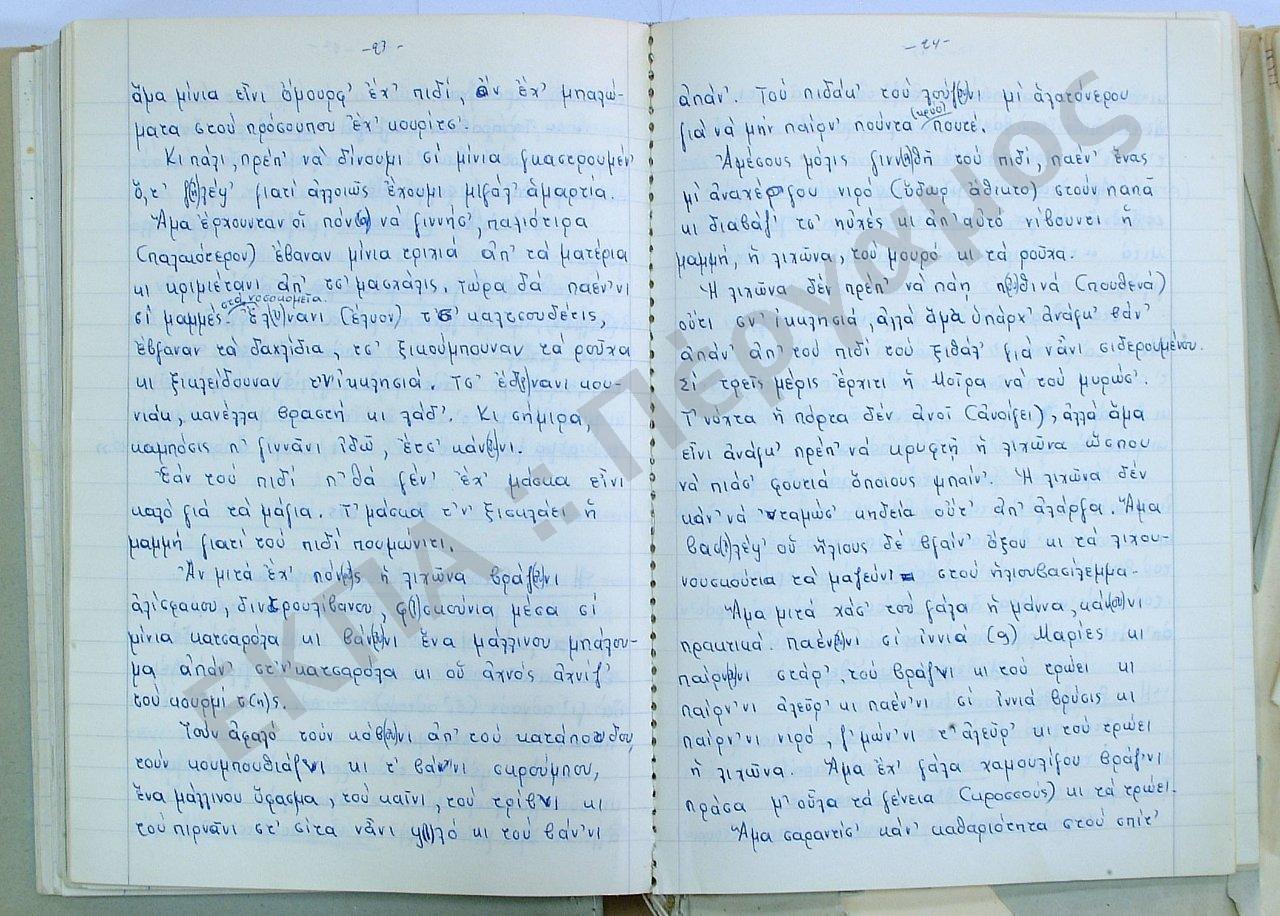 -23-
ἅμα μίνια εἶνι ὄμουρφ' ἔχ' πιδί, ἄν ἔχ' μπαλώ-
ματα στού πρόσουπου ἔχ' κουρίτσ'
Κι πάλι, πρέπ' νά δίνουμι σί μίνια γκαστρουμέν'
ὅ,τ' γ(υ)λέψ' γιατί ἀλλοιῶς ἔχουμι μιγάλ' ἁμαρτία.
Ἅμα ἔρχουνταν οἱ πόν(οι) νά γιννήσ', παλιότιρα
(παλαιότερον) ἔβαναν μίνια τριχιά ἀπ' τά ματέρια
κι κριμιέτανι ἀπ' τσ' μασχάλις. τώρα δά παέν'νι
στά νοσοκομεῖα.
σί μαμμές. Ἔλ(υ)νανι (έλυον) τσ' καλτσουδέτις,
ἔβγαναν τά δαχλίδια, τσ' ξικούμπουναν τά ροῦχα
κι ξικλείδουναν τ'ν ἰκκλησιά. Τσ' ἔδι(ν)νανι κου-
νιάκ, κανέλλα βραστή κι λάδ'. Κι σήμιρα,
καμπόσις π' γιννᾶνι ἰδῶ, ἔτσ' κάν(ου)νι.
Ἐάν τού πιδί π' θά γέν' ἔχ' μάσκα εἶνι
καλό γιά τά μάγια. Τ' μάσκα τ'ν ξισκλάει ἡ
μαμμή γιατί τού πιδί πουμώντι.
Ἄν μιτά ἔχ' πόν(ου)ς ἡ λιχῶνα βράζ(ου)νι
ἀλίσφακου, δινδρουλίβανου, φ(λ)σκούνια μέσα σί
μίνια κατσαρόλα κι βάν(ου)νι ἕνα μάλλινου μπάλου-
μα ἀπάν' στ'ν κατσαρόλα κι οὑ ἀχνός ἀχνίζ'
τού κουρμί τσ(η)ς.
Τούν ἀφαλό τούν κόβ(ου)νι ἀπ' τού κατάποδου,
τούν κουμπουθιάζ'νι κι τ' βάν'νι σκρούμπου,
ἕνα μάλλινου ὕφασμα, τού καῖνι, τού τρίβ'νι κι
τού πιρνᾶνι στ' σίτα νἆνι ψ(ι)λό κι τού βάν'νι
-24-
ἀπάν'. Τού πιδάκ' τού λούζ(ου)νι μί ἁλατόνερου
(κρύο)
γιά νά μήν παίρν' πούντα πουτέ.
Ἀμέσους μόλις γινν(η)θῆ τού πιδί, παέν' ἕνας
μί ἀναχέρ'γου νιρό (ὕδωρ ἄθικτο) στούν παπᾶ
κι διαβάζ' τσ' ηὐχές κι ἀπ' αὐτό νίβουντι ἡ
μαμμή, ἡ λιχῶνα, τού μουρό κι τά ροῦχα.
Ἡ λιχῶνα δέν πρέπ' νά πάη π(ου)θινά (πουθενά)
οὔτι σν' ἰκκλησιά, ἀλλά ἅμα ὑπάρχ' ἀνάγκ' βάν'
ἀπάν' ἀπ' τού πιδί τού ξιθάλ' γιά νἆνι σιδερουμένου.
Σί τρεῖς μέρις ἔρχιτι ἡ Μοῖρα νά τού μυρώσ'.
Τ' νύχτα ἡ πόρτα δέν ἀνοῖ (ἀνοίγει), ἀλλά ἅμα
εἶνι ἀνάγκ' πρέπ' νά κρυφτῆ ἡ λιχῶνα ὥσπου
νά πιάσ' φουτιά ὅποιους μπαίν'. Ἡ λιχῶνα δέν
κάν' νά 'νταμώσ' κηδεία οὔτ' ἀπ' ἀλάργα. Ἅμα
βασ(ι)λέψ' οὑ ἥλιους δέ βγαίν' ὄξου κι τά λιχου-
νουσκούτια τά μαζεύνι στού ἡλιουβασίλεμμα-
Ἅμα μιτά χάσ' τού γάλα ἡ μάννα, κάν(ου)νι
πρακτικά. Παέν(ου)νι σί ἰννιά (9) Μαρίες κι
παίρν(ου)νι στάρ', τού βράζ'νι κι τού τρώει κι
παίρν'νι ἀλεῦρ' κι παέν'νι σί ἰννιά βρύσις κι
παίρν'νι νιρό, ζ'μών'νι τ' ἀλεῦρ' κι τού τρώει
ἡ λιχῶνα. Ἅμα ἔχ' γάλα χαμουλίγου βράζ'νι
πράσα μ' οὗλα τά γένεια (κροσσούς) κι τά τρώει.
Ἅμα σαραντίσ' κάν' καθαριότητα στού σπίτ'
ΕΚΠΑ :: Πέργαμος